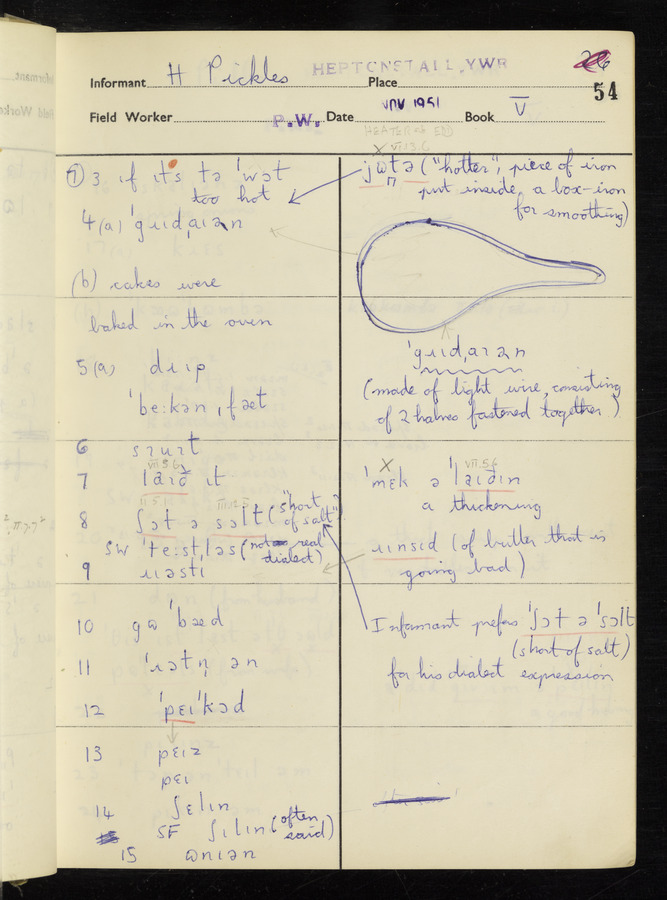 HEPTONSTALL, YWR
Informant H Pickles Place
54
Field Worker P.W. Date NOV 1951 Book V
HEATER OR END
X VI 13.6
⑦ 3 ɪf ɪt's tə 'wɔt
too hot
4 (a) 'gɹɪd,aɪən
(b) cakes were
baked in the oven
5 (a) dɹɪp
'be:kən ,fæt
6
7 ɪt
VII 5.6
8 ʃɔt ə sɔlt ("short
of salt")
SW 'te:st,ləs (not real
dialect)
9 ɹɪəstɪ
10 gɷ 'bæd
11 'ɹɔtn̩ ən
12 'pɛɪ'kɔd
13 pɛɪz
pɛɪ
14 ʃɛlɪn
SF ʃɪlɪn (often
said)
15 ɷnɪən
jɷtə ("hotter", piece of iron
put inside a box-iron
for smoothing)
'gɹɪd,aɪən
(made of light wire, consisting
of 2 halves fastened together)
X VII.5.6
'mɛk ə 'laɪðɪn
a thickening
(of butter that is
going bad)
Informant prefers 'ʃɔt ə 'sɔlt
(short of salt)
for his dialect expression